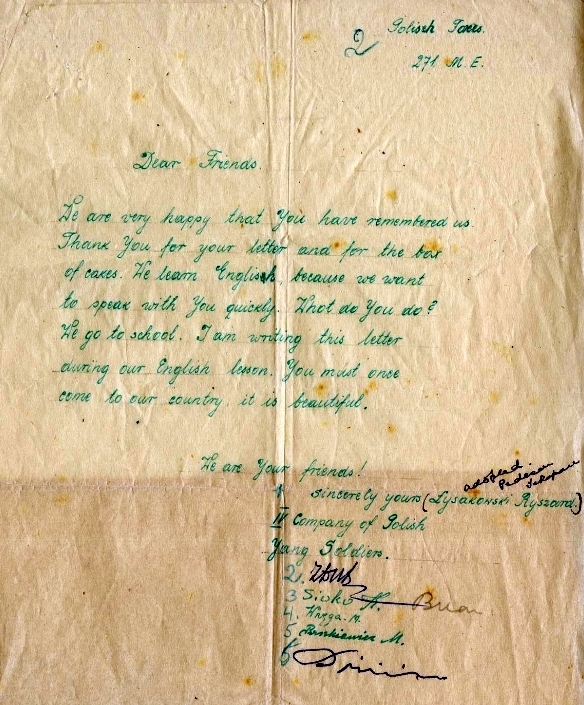 2 Polish Forces.
271 M. E.
Dear Friends.
We are very happy that You have remembered us.
Thank You for your letter and for the box
of cakes. We learn English, because we want
to speak with You quickly. What do You do?
We go to school. I am writing this letter
during our English lesson. You must once
come to our country, it is beautiful.
We are Your friends!
adopted
1 Sincerely yours (Łysakowski Ryszard)
IV Company of Polish
Yung Soldiers.
2.
3 Siuks H. Brien
4.
5 M.
6